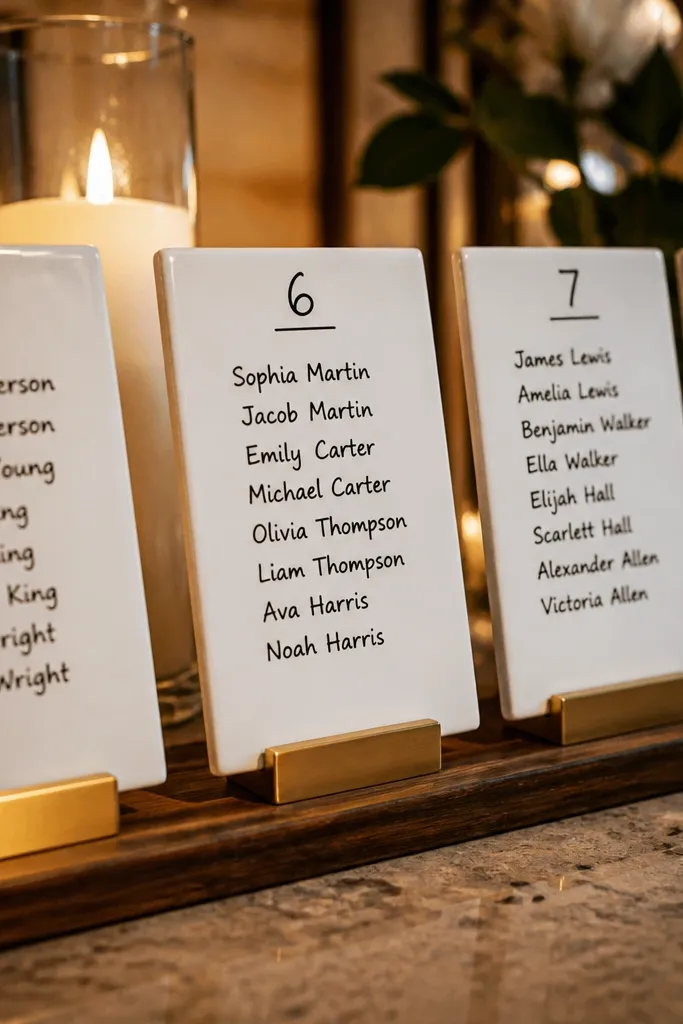 erson
erson
oung
ng
ing
King
right
Wright
6
Sophia Martin
Jacob Martin
Emily Carter
Michael Carter
Olivia Thompson
Liam Thompson
Ava Harris
Noah Harris
7
James Lewis
Amelia Lewis
Benjamin Walker
Ella Walker
Elijah Hall
Scarlett Hall
Alexander Allen
Victoria Allen